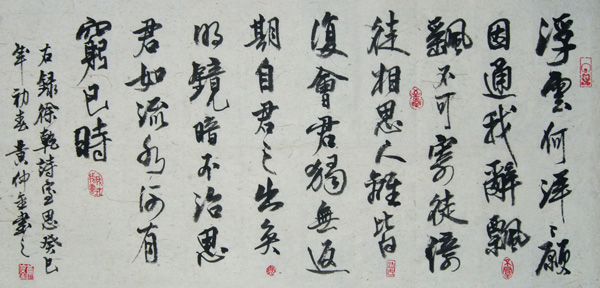 浮雲何洋〻願
因通我辭飄
颻不可寄徙倚
徒相思人離皆
復會君獨無返
期自君之出矣
明鏡暗不治思
君如流水何有
窮已時
右錄徐幹詩室思癸巳
年初春黄仲書之